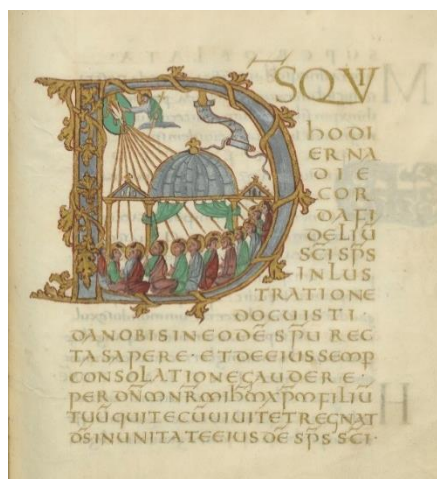 DS QUI
HODI
ERNA
DIE
COR
DA FI
DELIŪ
SC̄I SP̄S
INLUS
TRATIONE
DOCUISTI
DA NOBIS IN EODĒ SP̄U REC
TA SAPERE · ET DE EIUS SEMP
CONSOLATIONE GAUDERE ·
PER DN̄M NR̄M IHM̄ XP̄M FILIŪ
TUŪ QUI TECŪ UIUIT ET REGNAT
DS̄ IN UNITATE EIUSDĒ SP̄S SC̄I ·